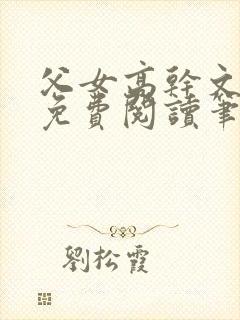 父女高幹文
免費閱讀筆
劉松霞